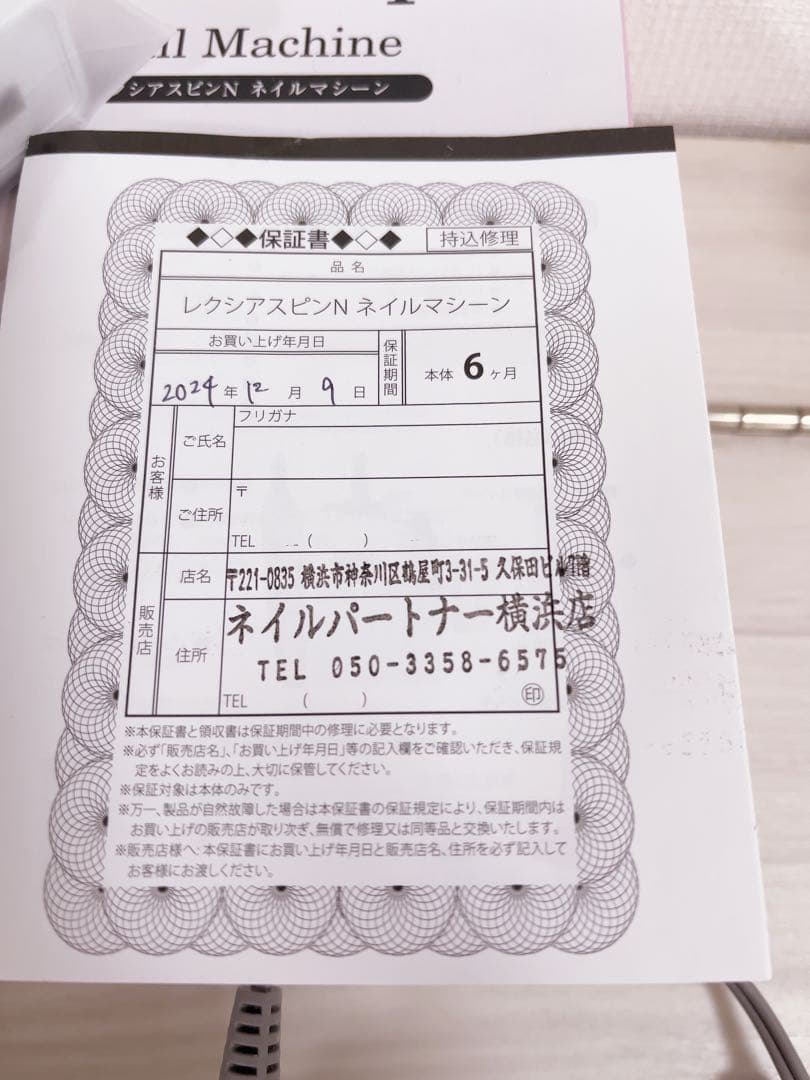 Machine
シアスピンN ネイルマシーン
◆◇◆保証書◆◇◆
持込修理
品名
レクシアスピンN ネイルマシーン
お買い上げ年月日
2024年12月9日
保証期間
本体 6ヶ月
お客様
フリガナ
ご氏名
ご住所
〒
TEL ( )
販売店
店名
〒221-0835 横浜市神奈川区鶴屋町3-31-5 久保田ビル7階
ネイルパートナー横浜店
住所
TEL 050-3358-6575
TEL ( )
印
※本保証書と領収書は保証期間中の修理に必要となります。
※必ず「販売店名」、「お買い上げ年月日」等の記入欄をご確認いただき、保証規
定をよくお読みの上、大切に保管してください。
※保証対象は本体のみです。
※万一、製品が自然故障した場合は本保証書の保証規定により、保証期間内は
お買い上げの販売店が取り次ぎ、無償で修理又は同等品と交換いたします。
※販売店様へ:本保証書にお買い上げ年月日と販売店名、住所を必ず記入して
お客様にお渡しください。